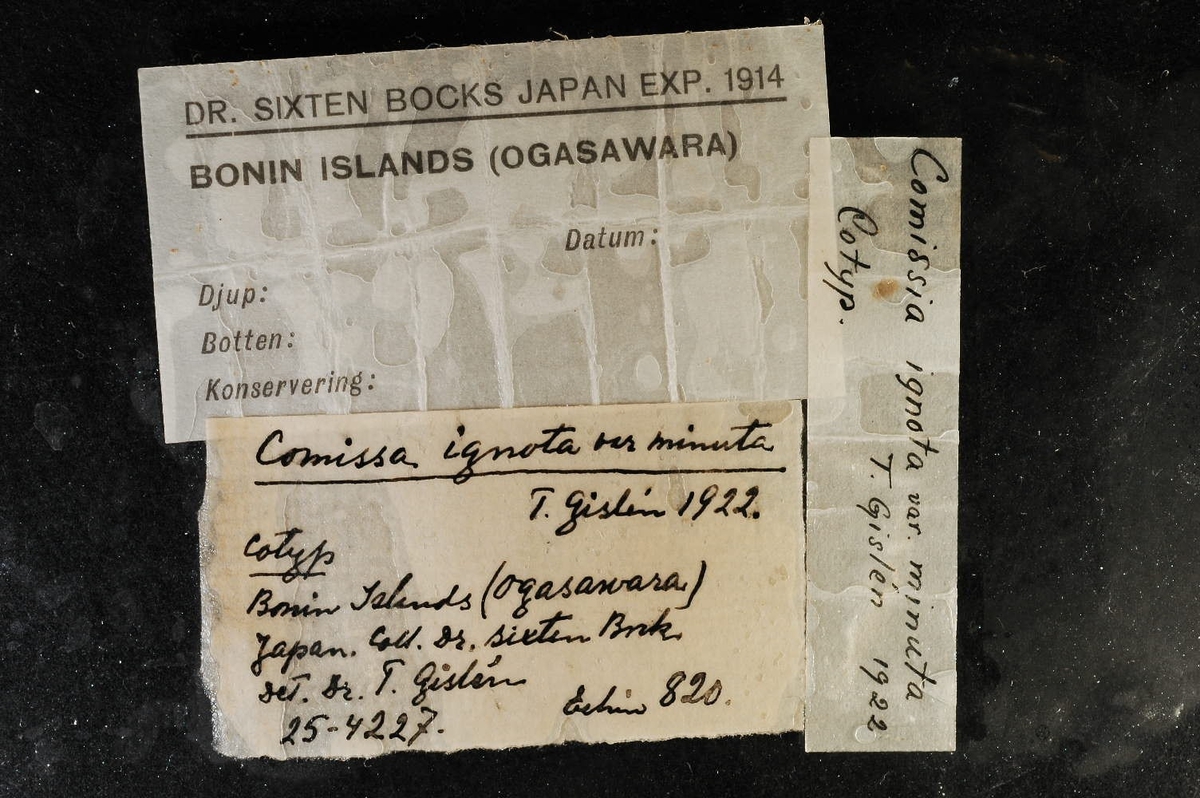 DR. SIXTEN BOCKS JAPAN EXP. 1914
BONIN ISLANDS (OGASAWARA)
Datum:
Djup:
Botten:
Konservering:
Comissa ignota var minuta
T. Gislén 1922.
Cotyp
Bonin Islands (Ogasawara)
Japan. Coll. Dr. Sixten Bock.
Det. Dr. T. Gislén
25-4227.
Echin 820.
Comissia ignota var. minuta
Cotyp.
T. Gislén 1922